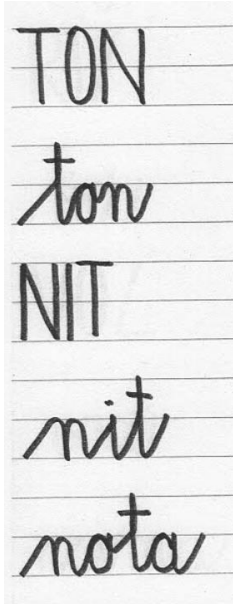 TON
ton
NIT
nit
nota